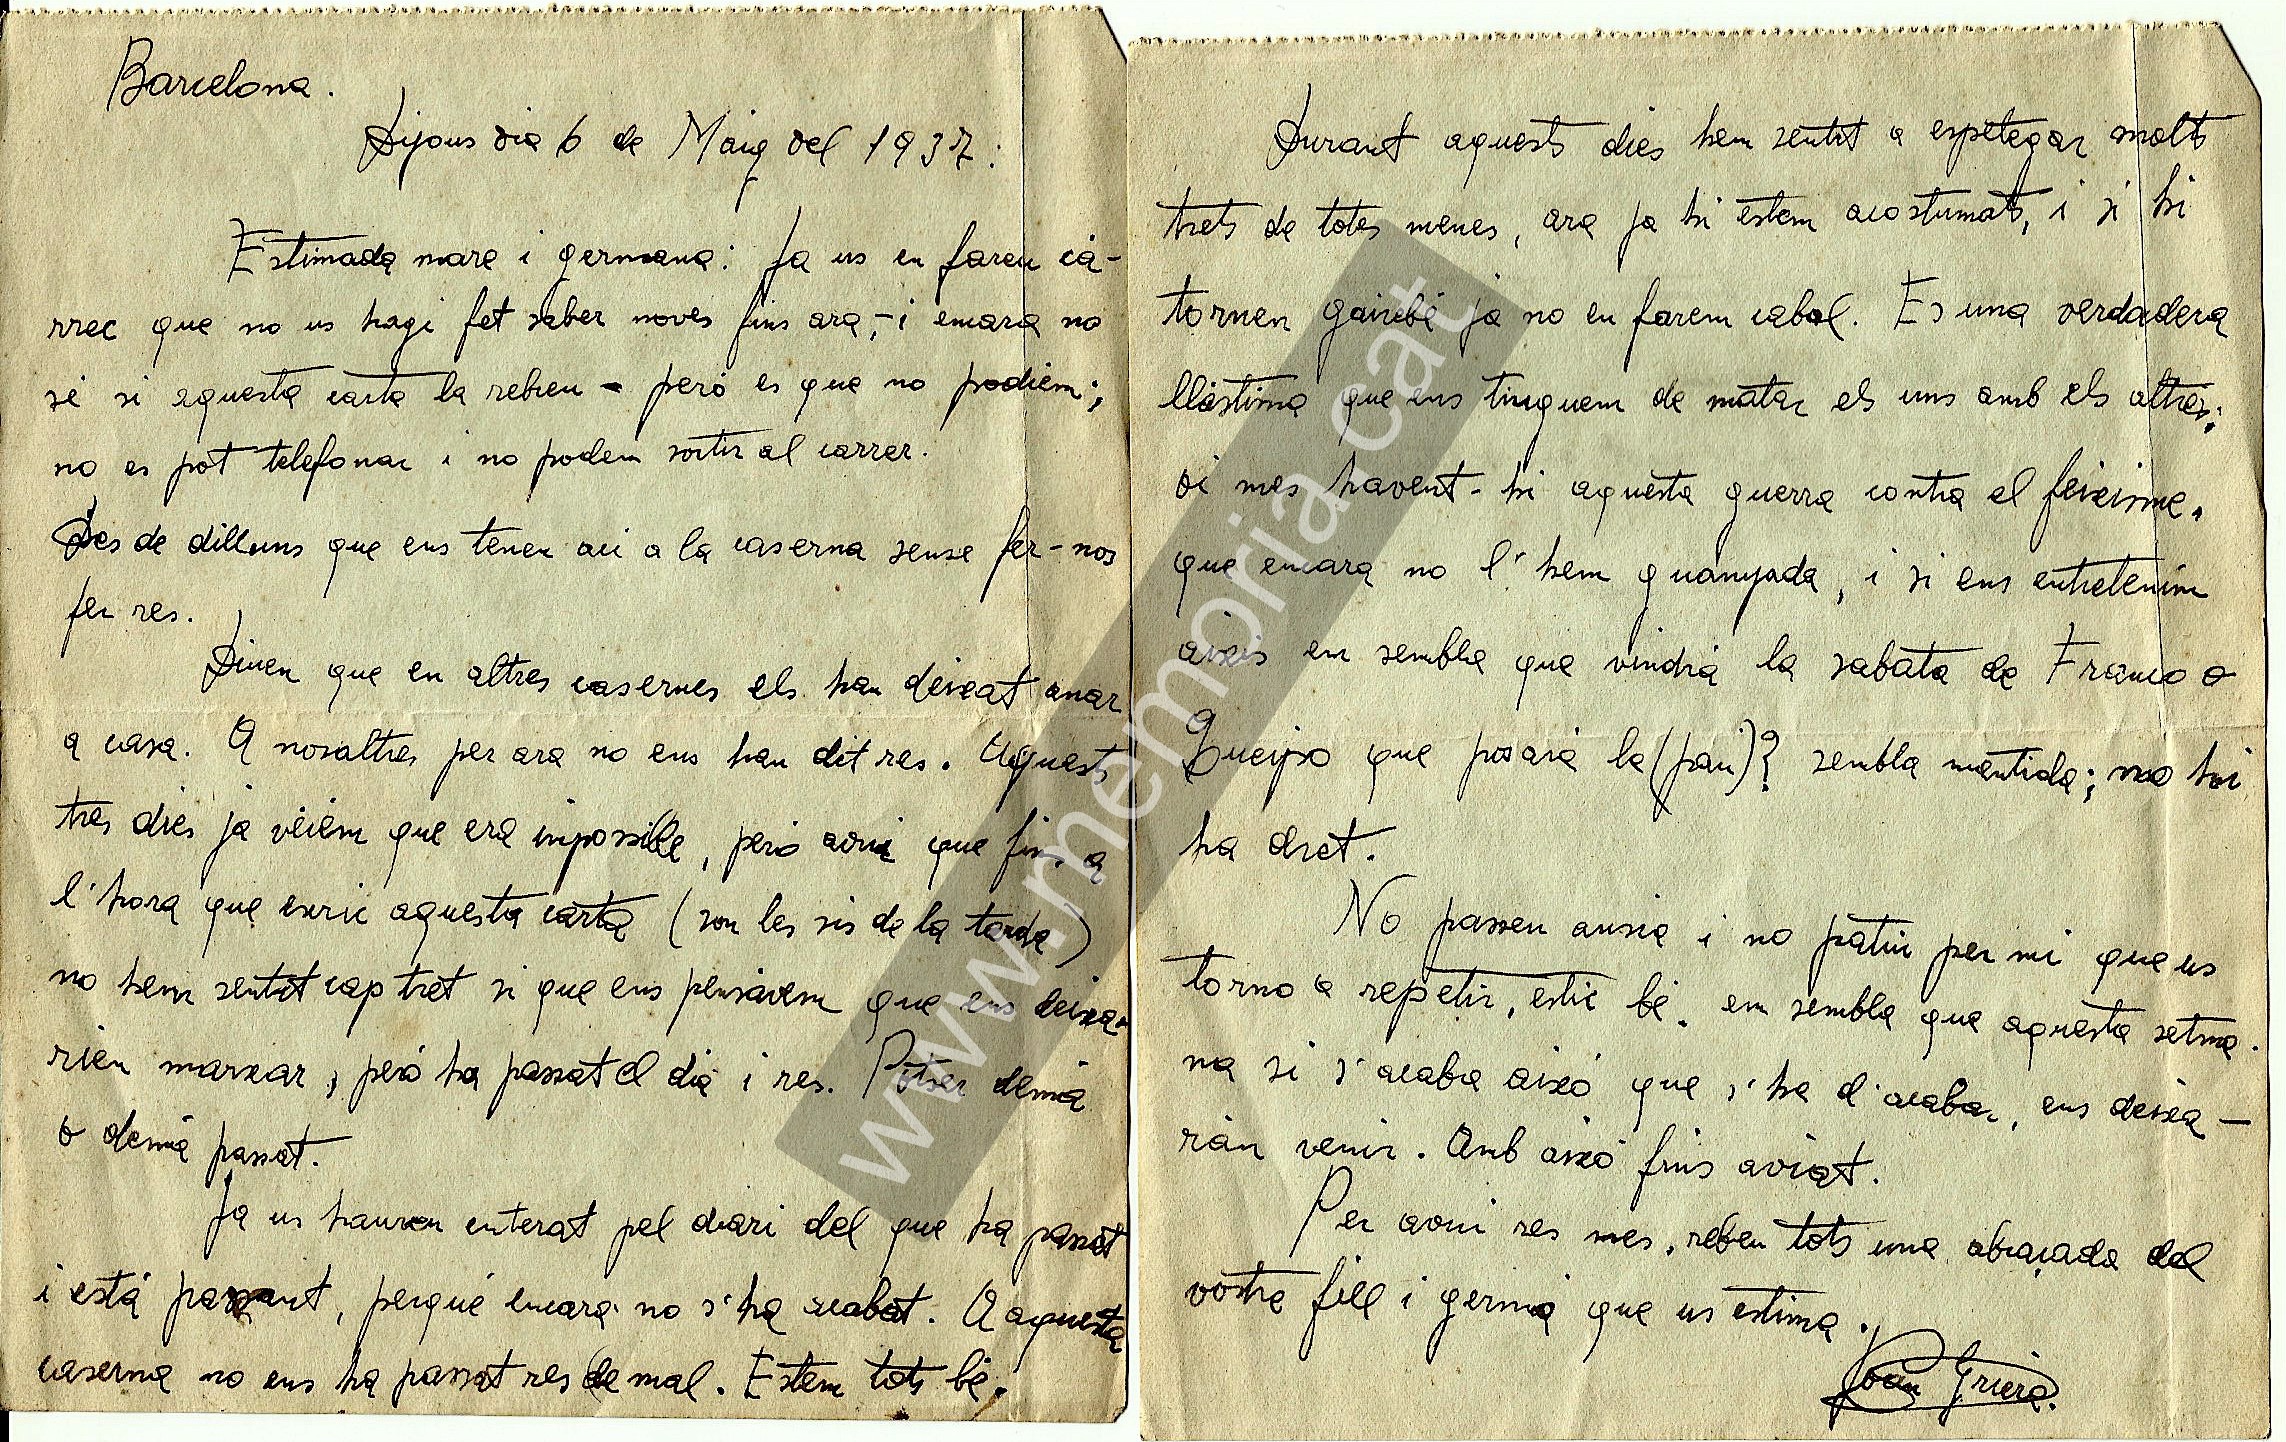 Barcelona.
Dijous dia 6 de Maig del 1937:
Estimada mare i germana: Ja us en fareu cà-
rrec que no us hagi fet saber noves fins ara,- i encara no
sé si aquesta carta la rebreu - però es que no podiem;
no es pot telefonar i no podem sortir al carrer.
Des de dilluns que ens tenen aci a la caserna sense fer-nos
fer res.
Diuen que en altres casernes els han deixat anar
a casa. A nosaltres per ara no ens han dit res. Aquests
tres dies ja vèiem que era impossible, però avui que fins a
l'hora que escric aquesta carta (son les sis de la tarda)
no hem sentit cap tret si que ens pensàvem que ens deixa-
rien marxar, però ha passat el dia i res. Potser demà
o demà passat.
Ja us haureu enterat pel diari del que ha passat
i està passant, perquè encara no s'ha acabat. A aquesta
caserna no ens ha passat res de mal. Estem tots bé.
Durant aquests dies hem sentit a espetegar molts
trets de totes menes, ara ja hi estem acostumats, i si hi
tornen gairebé ja no en farem cabal. Es una verdadera
llàstima que ens tinguem de matar els uns amb els altres;
i mes havent-hi aquesta guerra contra el feixisme,
que encara no l'hem guanyada, i si ens entretenim
aixis em sembla que vindrà la sabata de Franco o
Queipo que posarà la (pau)? sembla mentida; no hi
ha dret.
No passeu ansia i no patiu per mi que us
torno a repetir, estic bé. em sembla que aquesta setma-
na si s'acaba això que s'ha d'acabar, ens deixa-
ràn venir. Amb això fins aviat.
Per avui res mes, rebeu tots una abraçada del
vostre fill i germà que us estima.
Joan Griera.
www.memoria.cat